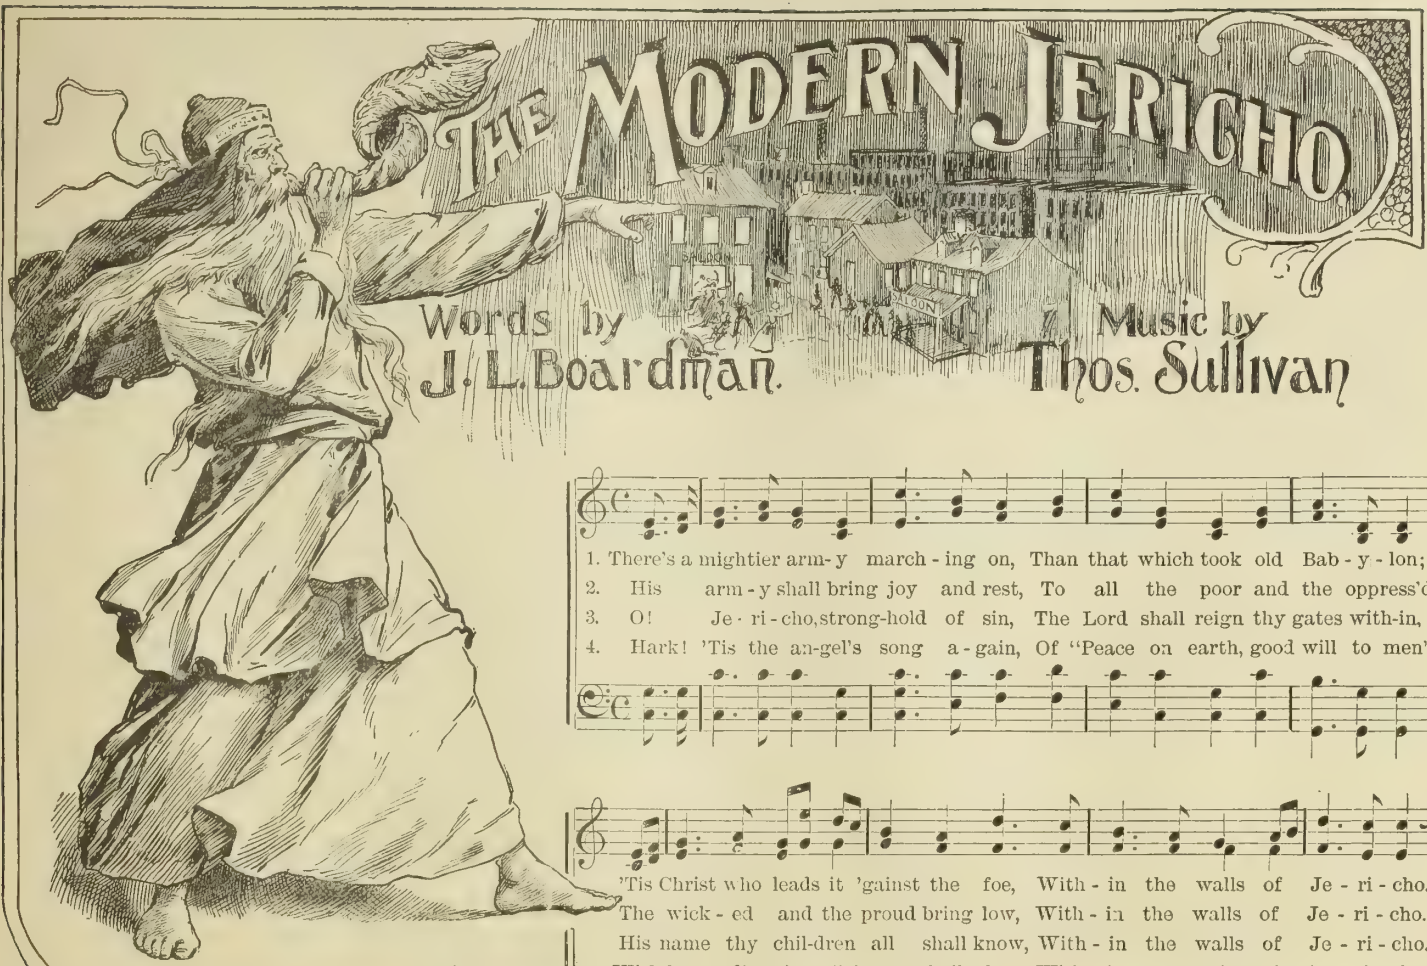 THE MODERN JERICHO.
SALOON
SALOON
Words by
J. L. Boardman.
Music by
Thos. Sullivan
1. There's a mightier arm-y march-ing on, Than that which took old Bab-y-lon;
2. His arm-y shall bring joy and rest, To all the poor and the oppress'd
3. O! Je-ri-cho, strong-hold of sin, The Lord shall reign thy gates with-in,
4. Hark! 'Tis the an-gel's song a-gain, Of "Peace on earth, good will to men"
'Tis Christ who leads it 'gainst the foe, With-in the walls of Je-ri-cho.
The wick-ed and the proud bring low, With-in the walls of Je-ri-cho.
His name thy chil-dren all shall know, With-in the walls of Je-ri-cho.